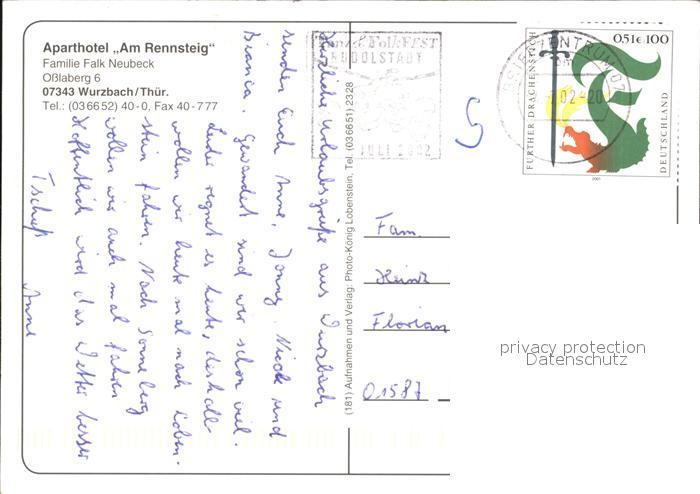 Aparthotel „Am Rennsteig“
Familie Falk Neubeck
Oßlaberg 6
07343 Wurzbach/Thür.
Tel.: (036652) 40-0, Fax 40-777
Herzliche Urlaubsgrüße aus Wurzbach
senden Euch Anne, Jonny, Nick und
Bianca. Gewandert sind wir schon viel.
Leider regnet es heute, deshalb
wollen wir heute mal nach Loben-
stein fahren. Nach Sonneberg
wollen wir auch mal fahren
Hoffentlich wird das Wetter besser
Tschüß Anne
(181) Aufnahmen und Verlag: Photo-König Lobenstein, Tel. (036651) 2328
FolkFEST
RUDOLSTADT
JULI 2002
BRIEFZENTRUM 07
02-20
0,51€ 100
FURTHER DRACHENSTICH
DEUTSCHLAND
2001
Fam.
Heinz
Florian
01587
privacy protection
Datenschutz